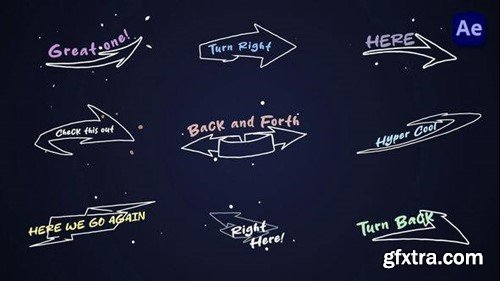 Great one!
Turn Right
HERE
Ae
Check this out
Back and Forth
Hyper Cool
HERE WE GO AGAIN
Right
Here!
Turn Back
gfxtra.com